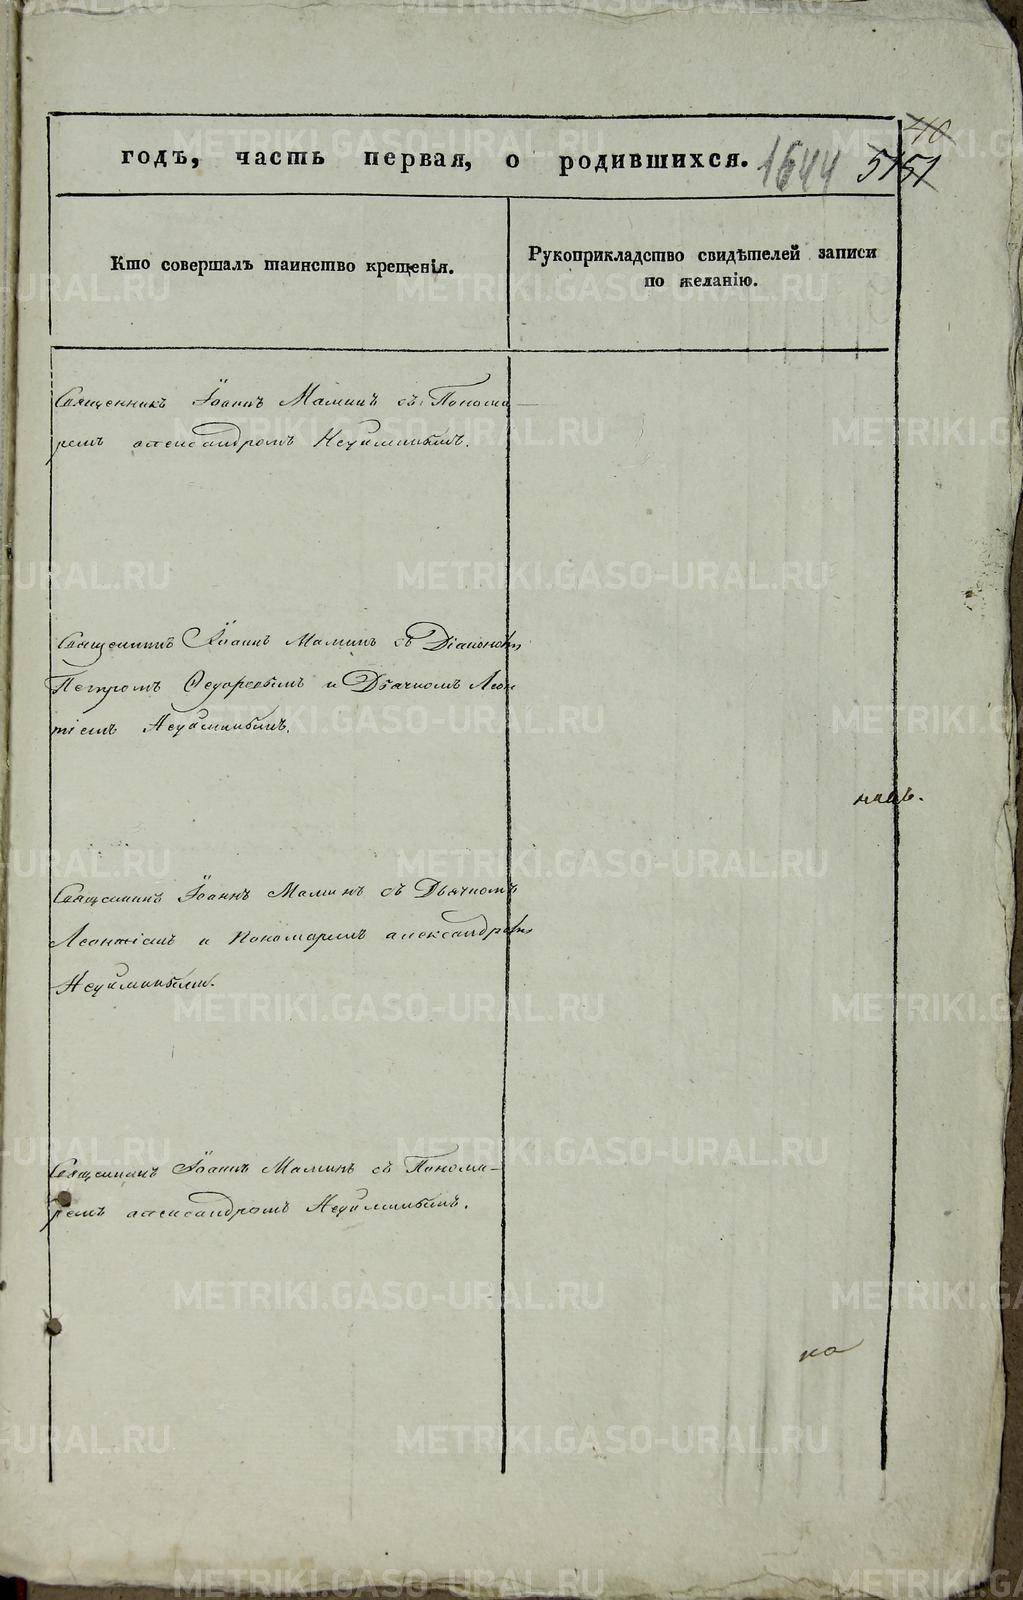 410
годъ, часть первая, о родившихся. 1644 51 51
Кто совершалъ таинство крещенія.
Рукоприкладство свидѣтелей записи
по желанію.
Священникъ Іоаннъ Маминъ съ Понома
ремъ Александромъ Неуйминымъ.
Священникъ Іоаннъ Маминъ съ Діакономъ
Петромъ и Дьячкомъ Леон
тіемъ Неуйминымъ.
Священникъ Іоаннъ Маминъ съ Дьячкомъ
Леонтіемъ и Пономаремъ Александромъ
Неуймиными.
Священникъ Іоаннъ Маминъ съ Понома-
ремъ Александромъ Неуйминымъ.
ка
METRIKI.GASO-URAL.RU